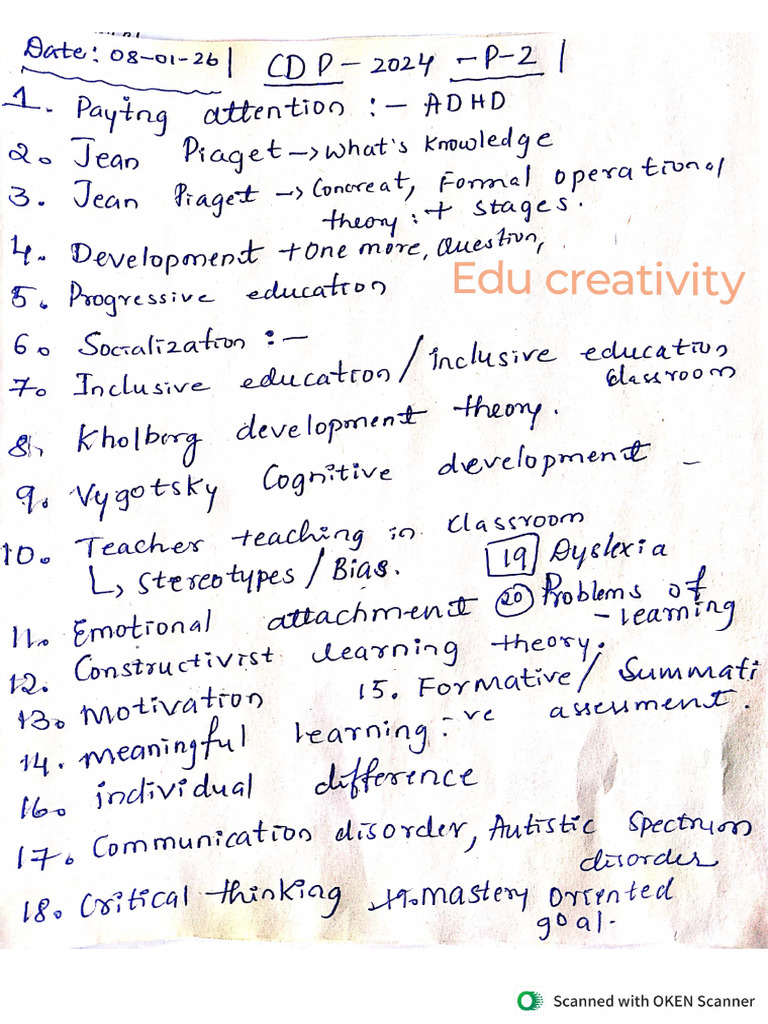 Date: 08-01-26 | CDP - 2024 - P-2 |
1. Paying attention :- ADHD
2. Jean Piaget -> What's Knowledge
3. Jean Piaget -> Concreat, Formal operational
theory: + stages.
4. Development + One more, Question,
Edu creativity
5. Progressive education
6. Socialization :-
7. Inclusive education / inclusive education
classroom
8. Kholberg development theory.
9. Vygotsky Cognitive development -
10. Teacher teaching in classroom
↳ Stereotypes / Bias.
19 Dyslexia
20 Problems of
- learning
11. Emotional attachment
12. Constructivist learning theory.
13. Motivation
15. Formative / Summati
ve assessment.
14. meaningful learning :
16. individual difference
17. Communication disorder, Autistic Spectrum
disorder
18. Critical thinking 19. mastery oriented
goal.
Scanned with OKEN Scanner